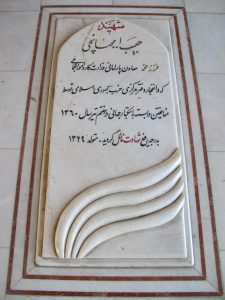 شهید
حبیب ا... مهمانچی
فرزند محمد معاون پارلمانی وزارت کار و امور اجتماعی
که در انفجار دفتر مرکزی حزب جمهوری اسلامی توسط
منافقین وابسته به استکبار جهانی در هفتم تیر سال ۱۳۶۰
به درجه رفیع شهادت نائل گردید. تولد ۱۳۲۹